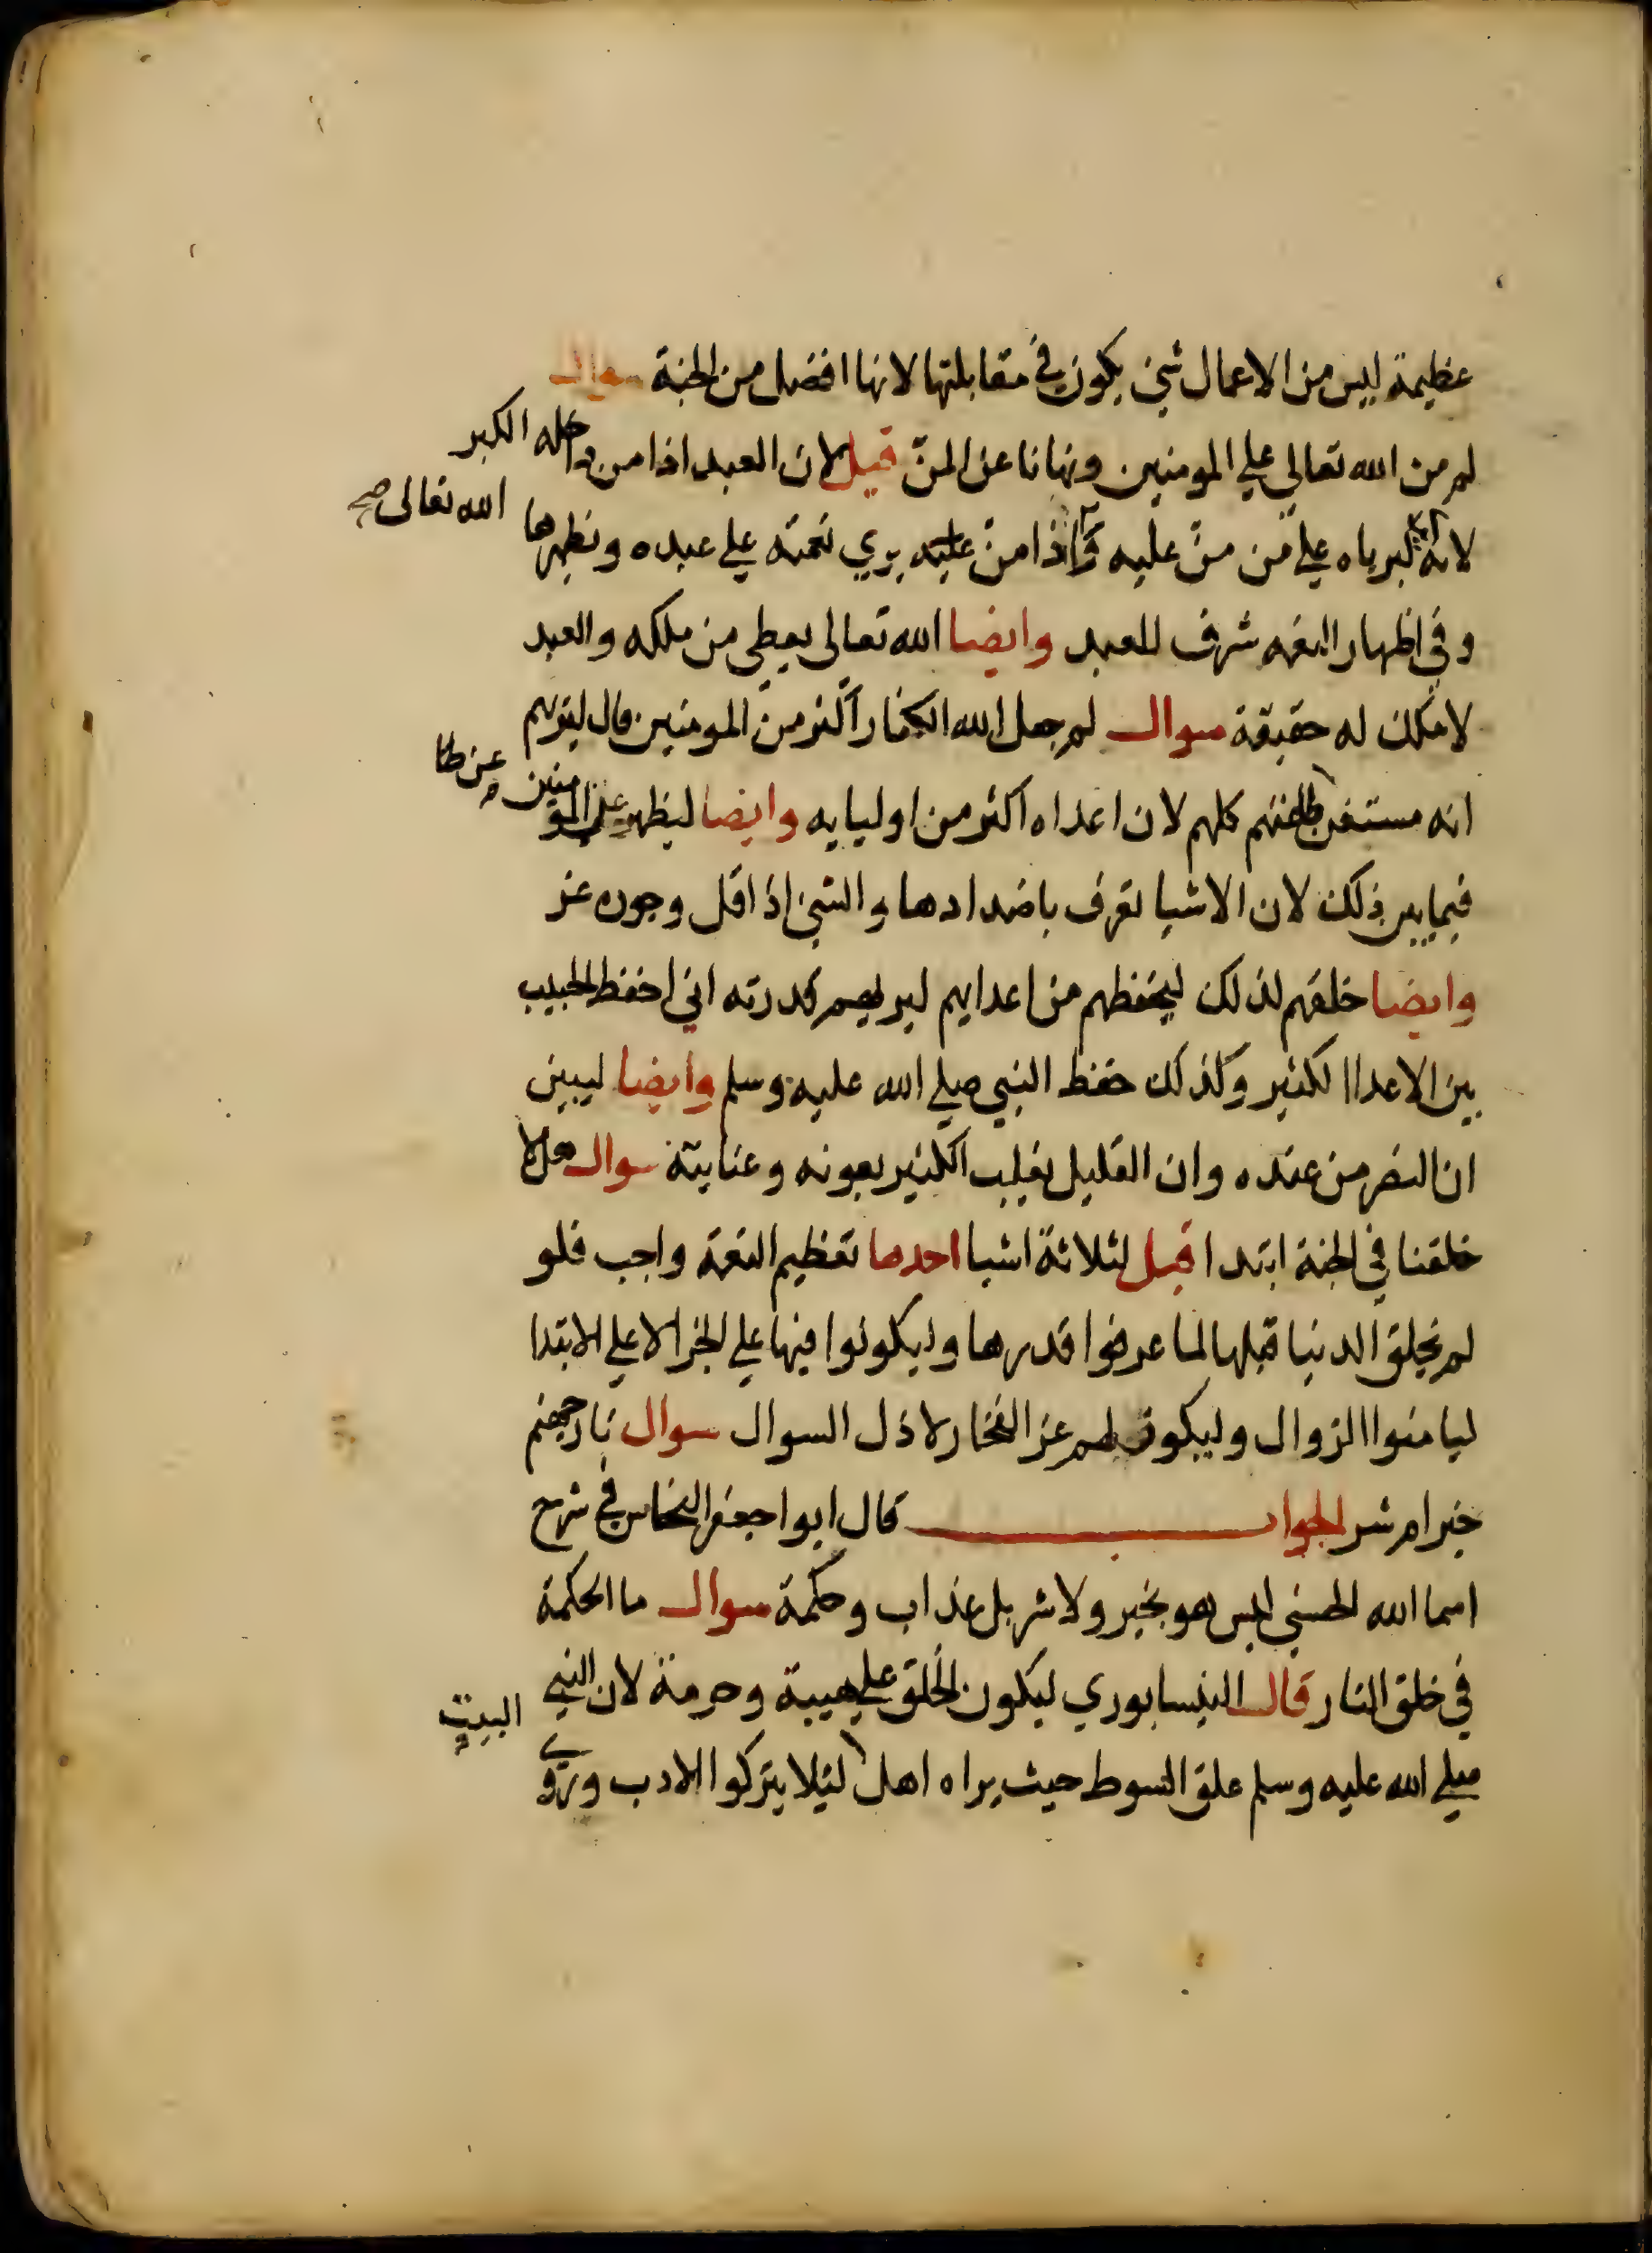 عظيمة ليس من الاعمال شئ يكون في مقابلتها لانها افضل من الجنة سوال
لم من الله تعالي علي المومنين ونهانا عن المنّ قيل لان العبد اذا من دخله الكبر
لانه لبرياه علي من منّ عليه واذا منّ عليه يري نعمته علي عبده ونظرها الله تعالى صح
وفي اظهار النعمه شرف للعبد وايضا الله تعالى يعطي من ملكه والعبد
لا ملك له حقيقة سوال لم جعل الله الكفار اكثر من المومنين قال ليريهم
انه مستغن عن طاعتهم كلهم لان اعداه اكثر من اوليايه وايضا ليظهر عز المومنين
فيما بين ذلك لان الاشيا تعرف باضدادها والشئ اذا قل وجوده عز
وايضا خلقهم لذلك ليحفظهم من اعدايهم ليريهم قدرته اني احفظ الحبيب
بين الاعدا الكثير وكذلك حفظ النبي صلي الله عليه وسلم وايضا ليبين
ان النصر من عنده وان القليل يغلب الكثير بعونه وعنايته سوال هلا
خلقنا في الجنة ابتدا قيل لثلاثة اشيا احدها تعظيم النعمة واجب فلو
لم يخلق الدنيا قبلها لما عرفوا قدرها وليكونوا فيها علي الجزا لا علي الابتدا
ليامنوا الزوال وليكون لهم عز الفخار لا ذل السوال سوال نار جهنم
خير ام شر الجواب قال ابوا جعفر النحاس في شرح
اسما الله الحسني ليس هو بخير ولا شر بل عذاب وحكمة سوال ما الحكمة
في خلق النار قال النيسابوري ليكون الخلق علي هيبة وحرمة لان النبي
صلي الله عليه وسلم علق السوط حيث يراه اهل البيت ليلا يتركوا الادب وروي